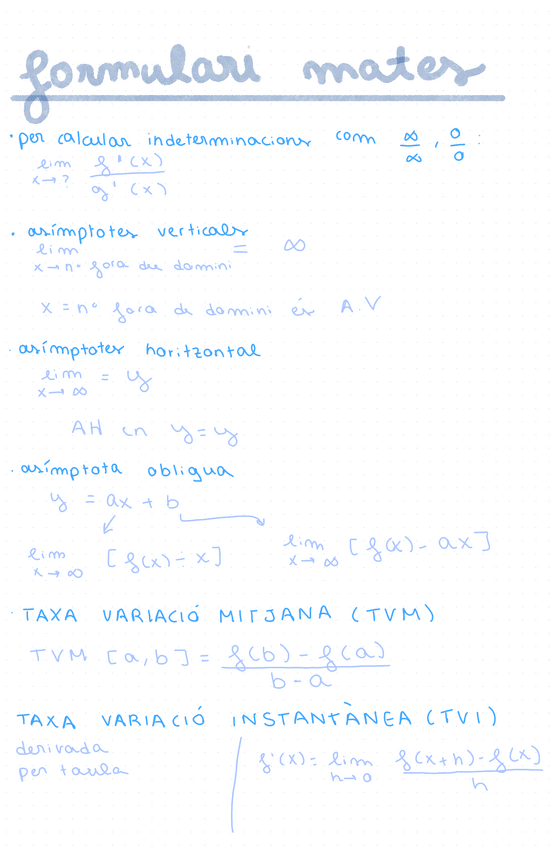 formulari mates
· per calcular indeterminacions com ∞/∞ , 0/0 :
lim x→? f'(x) / g'(x)
· asímptotes verticals
lim x→nº fora due domini = ∞
x = nº fora de domini és A.V
· asímptotes horitzontal
lim x→∞ = y
AH en y=y
· asímptota obliqua
y = ax + b
lim x→∞ [f(x) ÷ x] lim x→∞ [f(x) - ax]
· TAXA VARIACIÓ MITJANA (TVM)
TVM [a,b] = f(b) - f(a) / b - a
TAXA VARIACIÓ INSTANTÀNEA (TVI)
derivada
per taula
f'(x) = lim h→0 f(x+h) - f(x) / h